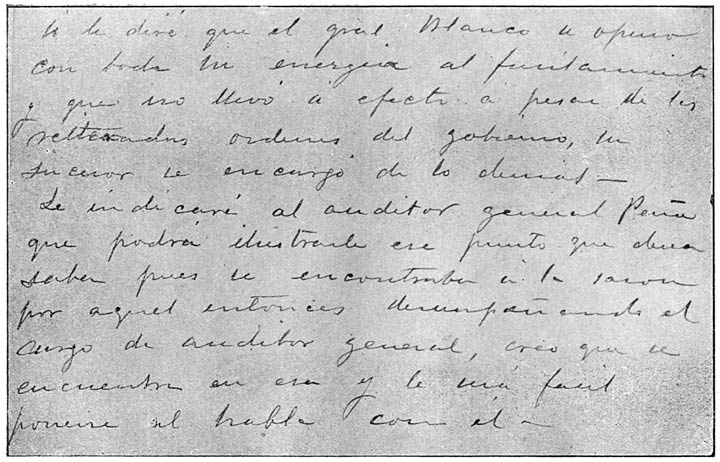 le diré que el gral Blanco se opuso
con toda su energia al fusilamiento
y que no llevó a efecto a pesar de las
reiteradas ordenes del gobierno, su
sucesor se encargó de lo demas—
Le indicaré al auditor general Peña
que podrá ilustrarle ese punto que desea
saber pues se encontraba a la sazon
por aquel entonces desempeñando el
cargo de auditor general, creo que se
encuentra en esa y le será facil
ponerse al habla con él—